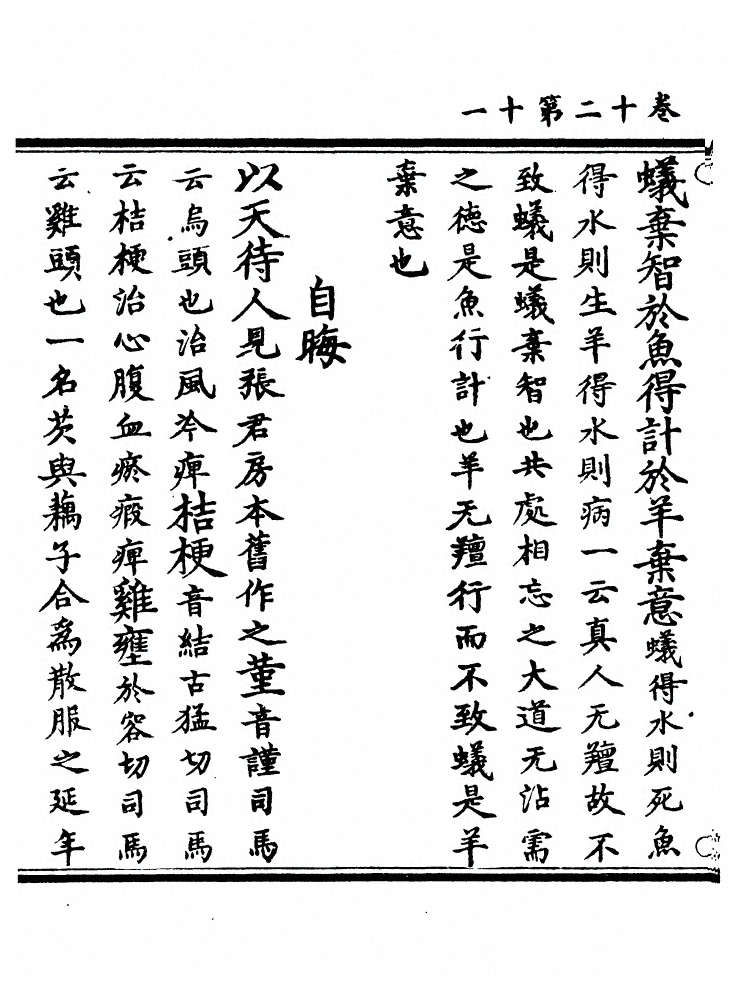 卷十二第十一
蟻棄智於魚得計於羊棄意蟻得水則死魚
得水則生羊得水則病一云真人无羶故不
致蟻是蟻棄智也共處相忘之大道无沾濡
之德是魚行計也羊无羶行而不致蟻是羊
棄意也
自晦
以天待人見張君房本舊作之堇音謹司馬
云烏頭也治風冷痺桔梗音結古猛切司馬
云桔梗治心腹血瘀瘕痺雞壅於容切司馬
云雞頭也一名芡與藕子合為散服之延年